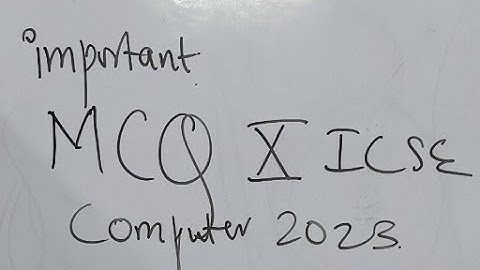 important
MCQ X ICSE
Computer 2023.